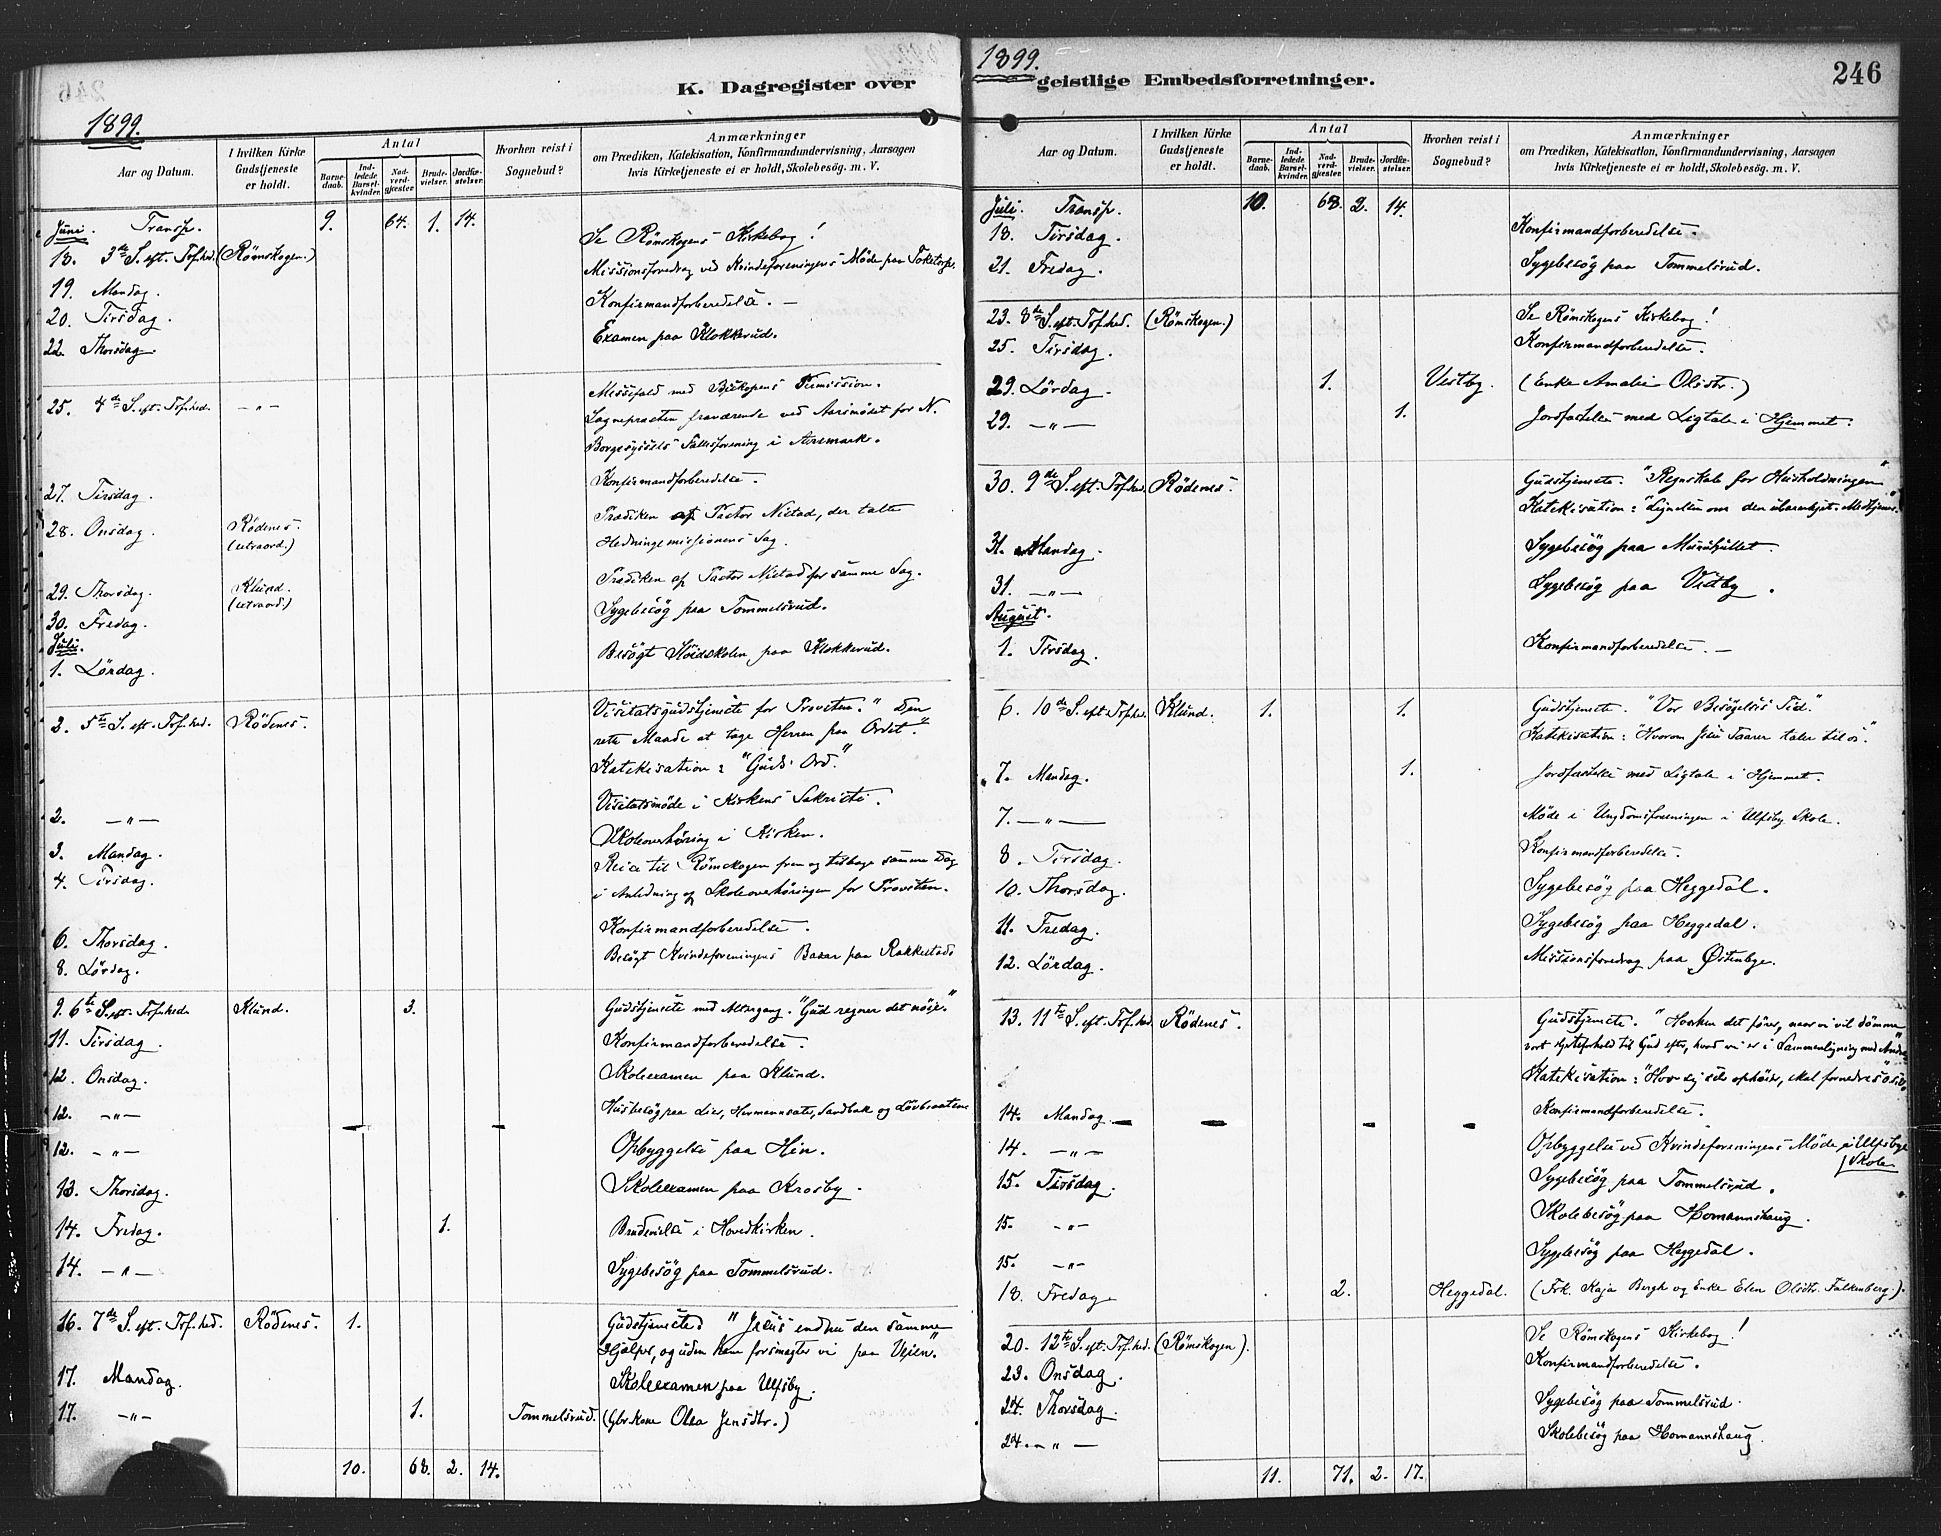 1899.
K. Dagregister over
1899.
Aar og Datum.
I hvilken Kirke Gudstjeneste er holdt.
Antal
Barnedaab.
Indledede Barselkvinder.
Nadverdgjester
Brudevielser.
Jordfæstelser.
Hvorhen reist i Sognebud?
Anmærkninger
om Prædiken, Katekisation, Konfirmandundervisning, Aarsagen
hvis Kirketjeneste ei er holdt, Skolebesøg. m. V.
Juni. Transp. 9. 64. 1. 14.
18. 3de S. eft. Tref.hed. (Römskogen.) Se Römskogens Kirkebog!
Missionsforedrag ved Kvindeforeningens Møde paa
19. Mandag.
20. Tirsdag. Konfirmandforberedelse. —
22. Thorsdag. Examen paa Klokkerud.
25. 4de S. eft. Tref.hed. —"— Messefald med Biskopens Permission.
Sognepræsten fraværende ved Aarsmødet for N.
Borgesyssels Fællesforening i Aremark.
27. Tirsdag. Konfirmandforberedelse.
28. Onsdag. Rødenes. (extraord.) Prædiken af Pastor Nistad, der talte
Hedningemissionens Sag.
29. Thorsdag. Klund. (extraord.) Prædiken af Pastor Nistad for samme Sag.
30. Fredag. Sygebesög paa Tommelsrud.
Juli.
1. Lördag. Besögt Høidskolen paa Klokkerud.
2. 5te S. eft. Tref.hed. Rødenes. Visitatsgudstjeneste for Provsten. "Den
rette Maade at tage Herren paa Ordet."
Katekisation: "Guds Ord."
2. —"— Visitatsmøde i Kirkens Sakristi.
3. Mandag. Skoleoverhöring i Kirken.
4. Tirsdag. Reise til Römskogen frem og tilbage samme Dag
i Anledning af Skoleoverhöringen for Provsten.
6. Thorsdag. Konfirmandforberedelse.
8. Lördag. Besögt Kvindeforeningens Bazar paa Rakkestad
9. 6te S. eft. Tref.hed. Klund. 3. Gudstjeneste med Altergang. "Gud regner det nöie."
11. Tirsdag. Konfirmandforberedelse.
12. Onsdag. Skoleexamen paa Klund.
12. —"— Husbesög paa Lier, Hermannsæte, Sandbæk og
12. —"— Opbyggelse paa Hen.
13. Thorsdag. Skoleexamen paa Krosby.
14. Fredag. 1. Brudevielse i Hovedkirken.
14. —"— Sygebesög paa Tommelsrud.
16. 7de S. eft. Tref.hed. Rödenes. 1. Gudstjeneste "Jesus endnu den samme
Hjælper, og uden ham forsmægter vi paa Veien."
17. Mandag. Skoleexamen paa Ulfsby.
17. —"— 1. Tommelsrud. (Gbr.kone Olea Jensdtr.)
10. 68. 2. 14.
1899.
geistlige Embedsforretninger.
246
Aar og Datum.
I hvilken Kirke Gudstjeneste er holdt.
Antal
Barnedaab.
Indledede Barselkvinder.
Nadverdgjester
Brudevielser.
Jordfæstelser.
Hvorhen reist i Sognebud?
Anmærkninger
om Prædiken, Katekisation, Konfirmandundervisning, Aarsagen
hvis Kirketjeneste ei er holdt, Skolebesøg. m. V.
Juli. Transp. 10. 68. 2. 14.
18. Tirsdag. Konfirmandforberedelse.
21. Fredag. Sygebesög paa Tommelsrud.
23. 8de S. eft. Tref.hed. (Römskogen.) Se Römskogens Kirkebog!
25. Tirsdag. Konfirmandforberedelse.
29. Lördag. 1. Vestby. (Enke Amalie Olsdtr.)
29. —"— 1. Jordfæstelse med Ligtale i Hjemmet.
30. 9de S. eft. Tref.hed. Rödenes. Gudstjeneste. "Regnskab for Husholdningen"
Katekisation: "Lignelsen om den ubarmhjert. Medtjener."
31. Mandag. Sygebesög paa
31. —"— Sygebesög paa Vestby.
August.
1. Tirsdag. Konfirmandforberedelse. —
6. 10de S. eft. Tref.hed. Klund. 1. 1. Gudstjeneste. "Vor Besögelses Tid."
Katekisation: "Hvorom Jesu Taarer taler til os."
7. Mandag. 1. Jordfæstelse med Ligtale i Hjemmet.
7. —"— Møde i Ungdomsforeningen i Ulfsby Skole.
8. Tirsdag. Konfirmandforberedelse.
10. Thorsdag. Sygebesög paa Heggedal.
11. Fredag. Sygebesög paa Heggedal.
12. Lördag. Missionsforedrag paa Østenbye.
13. 11te S. eft. Tref.hed. Rödenes. Gudstjeneste. "Hvorhen det förer, naar vi vil dömme
vort Hjerteforhold til Gud efter, hvad vi er i Sammenligning med Andre."
Katekisation: "Hvo sig selv ophöier, skal fornedres"
14. Mandag. Konfirmandforberedelse.
14. —"— Opbyggelse ved Kvindeforeningens Møde i Ulfsbye Skole
15. Tirsdag. Sygebesög paa Tommelsrud.
15. —"— Skolebesög paa Homannshaug.
15. —"— Sygebesög paa Heggedal.
18. Fredag 2. Heggedal. (Frk. Kaja Bergh og Enke Elen Olsdtr. Falkenberg.)
20. 12te S. eft. Tref.hed. (Römskogen). Se Römskogens Kirkebog!
23. Onsdag. Konfirmandforberedelse.
24. Thorsdag. Sygebesög paa Tommelsrud.
24. —"— Skolebesög paa Homannshaug.
11. 71. 2. 17.